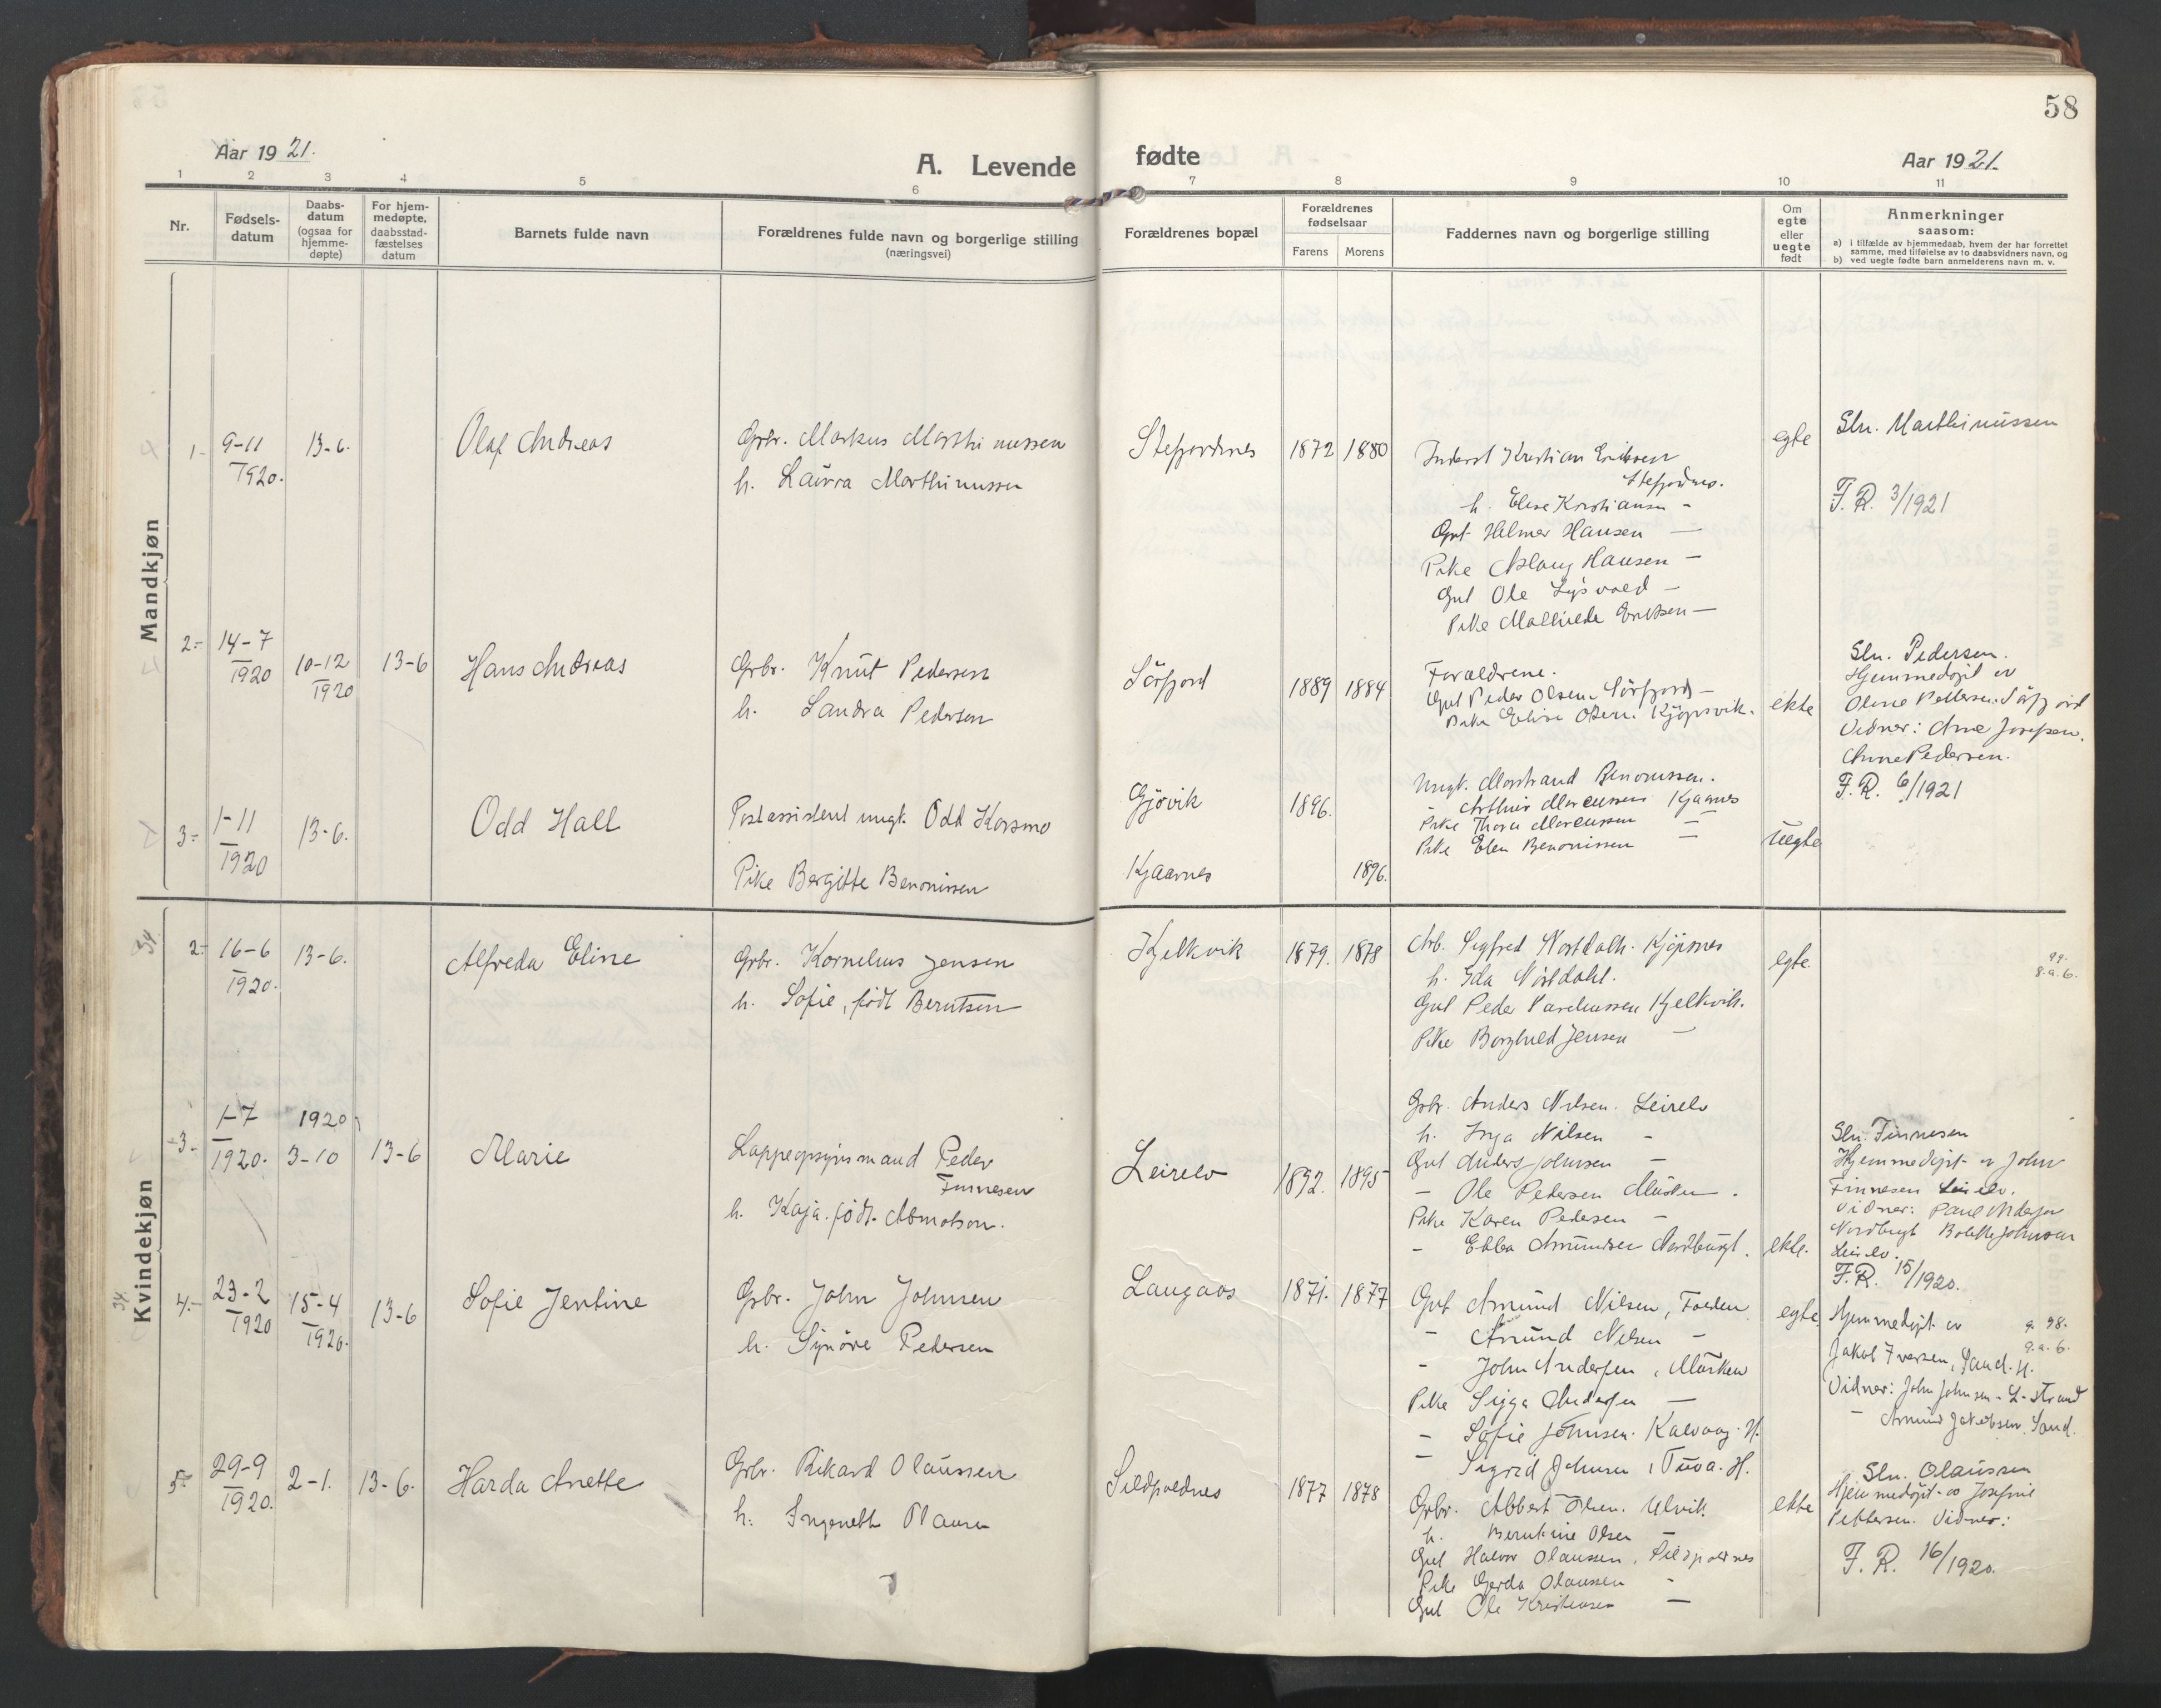 58
Aar 1921.
A. Levende
fødte
Aar 1921.
1 2 3 4 5 6 7 8 9 10 11
Nr.
Fødsels-
datum
Daabs-
datum
(ogsaa for
hjemme-
døpte)
For hjem-
medøpte,
daabsstad-
fæstelses
datum
Barnets fulde navn
Forældrenes fulde navn og borgerlige stilling
(næringsvei)
Forældrenes bopæl
Forældrenes
fødselsaar
Farens Morens
Faddernes navn og borgerlige stilling
Om
egte
eller
uegte
født
Anmerkninger
saasom:
a) i tilfælde av hjemmedaab, hvem der har forrettet
samme, med tilføielse av to daabsvidners navn, og
b) ved uegte fødte barn anmelderens navn m. v.
Mandkjøn
1- 9-11 1920. 13-6. Olaf Andreas
Grbr. Markus Marthinussen
h. Laura Marthinussen
Stefjordnes 1872 1880
Inderst Kristian Eriksen
Stefjordnes.
h. Elise Kristiansen -
Gut Helmer Hansen -
Pike Aslaug Hansen -
Gut Ole Lysvold -
Pike Mathilde Eriksen -
egte
Sln. Marthinussen
F. R. 3/1921
2- 14-7 1920 10-12 1920 13-6 Hans Andreas
Grbr. Knut Pedersen
h. Sandra Pedersen
Sörfjord 1889 1884
Forældrene.
Gut Peder Olsen. Sörfjord -
Pike Eline Olsen. Kjöpsvik.
ekte
Sln. Pedersen.
Hjemmedöpt av
Oline Pettersen. Sörfjord
Vidner: Arne Josefsen.
Anne Pedersen.
F. R. 6/1921
3- 1-11 1920 13-6. Odd Hall
Postassistent ungk. Odd Korsmo
Pike Bergitte Benonissen
Gjövik 1896.
Kjaarnes 1896.
Ungk. Morstrand Benonissen.
- Arthur Marcussen Kjaarnes
Pike Thora Marcussen -
Pike Elen Benonissen -
uegte
Kvindekjøn
34.
2- 16-6 1920. 13-6. Alfreda Eline
Grbr. Kornelius Jensen
h. Sofie, födt Berntsen
Kjelkvik 1879. 1878
Arb. Sigfred Nordahl. Kjöpsnes
h. Ida Nordahl.
Gut Peder Kjelkvik.
Pike Borghild Jensen -
egte.
3- 1-7 1920. 1920 3-10 13-6 Marie
Lappeopsynsmand Peder
Finnesen
h. Kaja. födt.
Leirelv 1892. 1895
Grbr. Anders Nilsen. Leirelv
h. Inga Nilsen -
Gut Anders Johnsen -
- Ole Pedersen Musken.
Pike Karen Pedersen -
- Ebba Amundsen Nordbugt.
ekte.
Sln. Finnesen
Hjemmedöpt av John
Finnesen Leirelv.
Vidner: Paul Andersen
Nordbugt Johnsen
Leirelv.
F. R. 15/1920.
34.
4.- 23-2 1920 15-4 1920. 13-6 Sofie Jentine
Grbr. John Johnsen
h. Synöve Pedersen
Langaas 1871. 1877
Gut Amund Nilsen,
- Amund Nilsen -
- John Andersen, Musken
Pike Sigga Andersen -
- Sofie Johnsen. Kalvaag. H.
- Sigrid Johnsen,
egte.
Hjemmedöpt av
Jakob Iversen, Sand. H.
Vidner: John Johnsen - L-strand
- Amund Jakobsen. Sand.
5- 29-9 1920. 2-1. 13-6. Harda Anette
Grbr. Rikard Olaussen
h. Ingeneth Olausen
Sildpolnes 1877 1878
Grbr. Albert Olsen. Ulvik.
h. Berntine Olsen -
Gut Halvor Olaussen, Sildpolnes
Pike Gerda Olaussen -
Gut Ole Kristiansen -
ekte
Sln. Olaussen
Hjemmedöpt av Josefine
Pettersen. Vidner:
F. R. 16/1920.